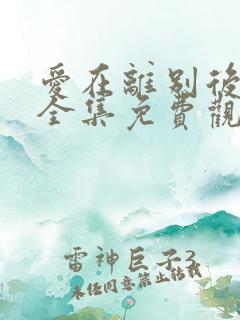 愛在離別後
全集免費觀
雷神巨子3
未经同意禁止转载